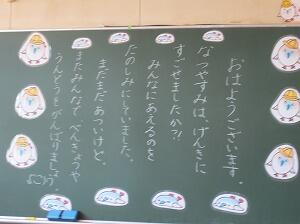 おはようございます。
なつやすみは、げんきに
すごせましたか?!
みんなにあえるのを
たのしみにしていました。
まだまだあついけど、
またみんなで べんきょうや
うんどうをがんばりましょう。